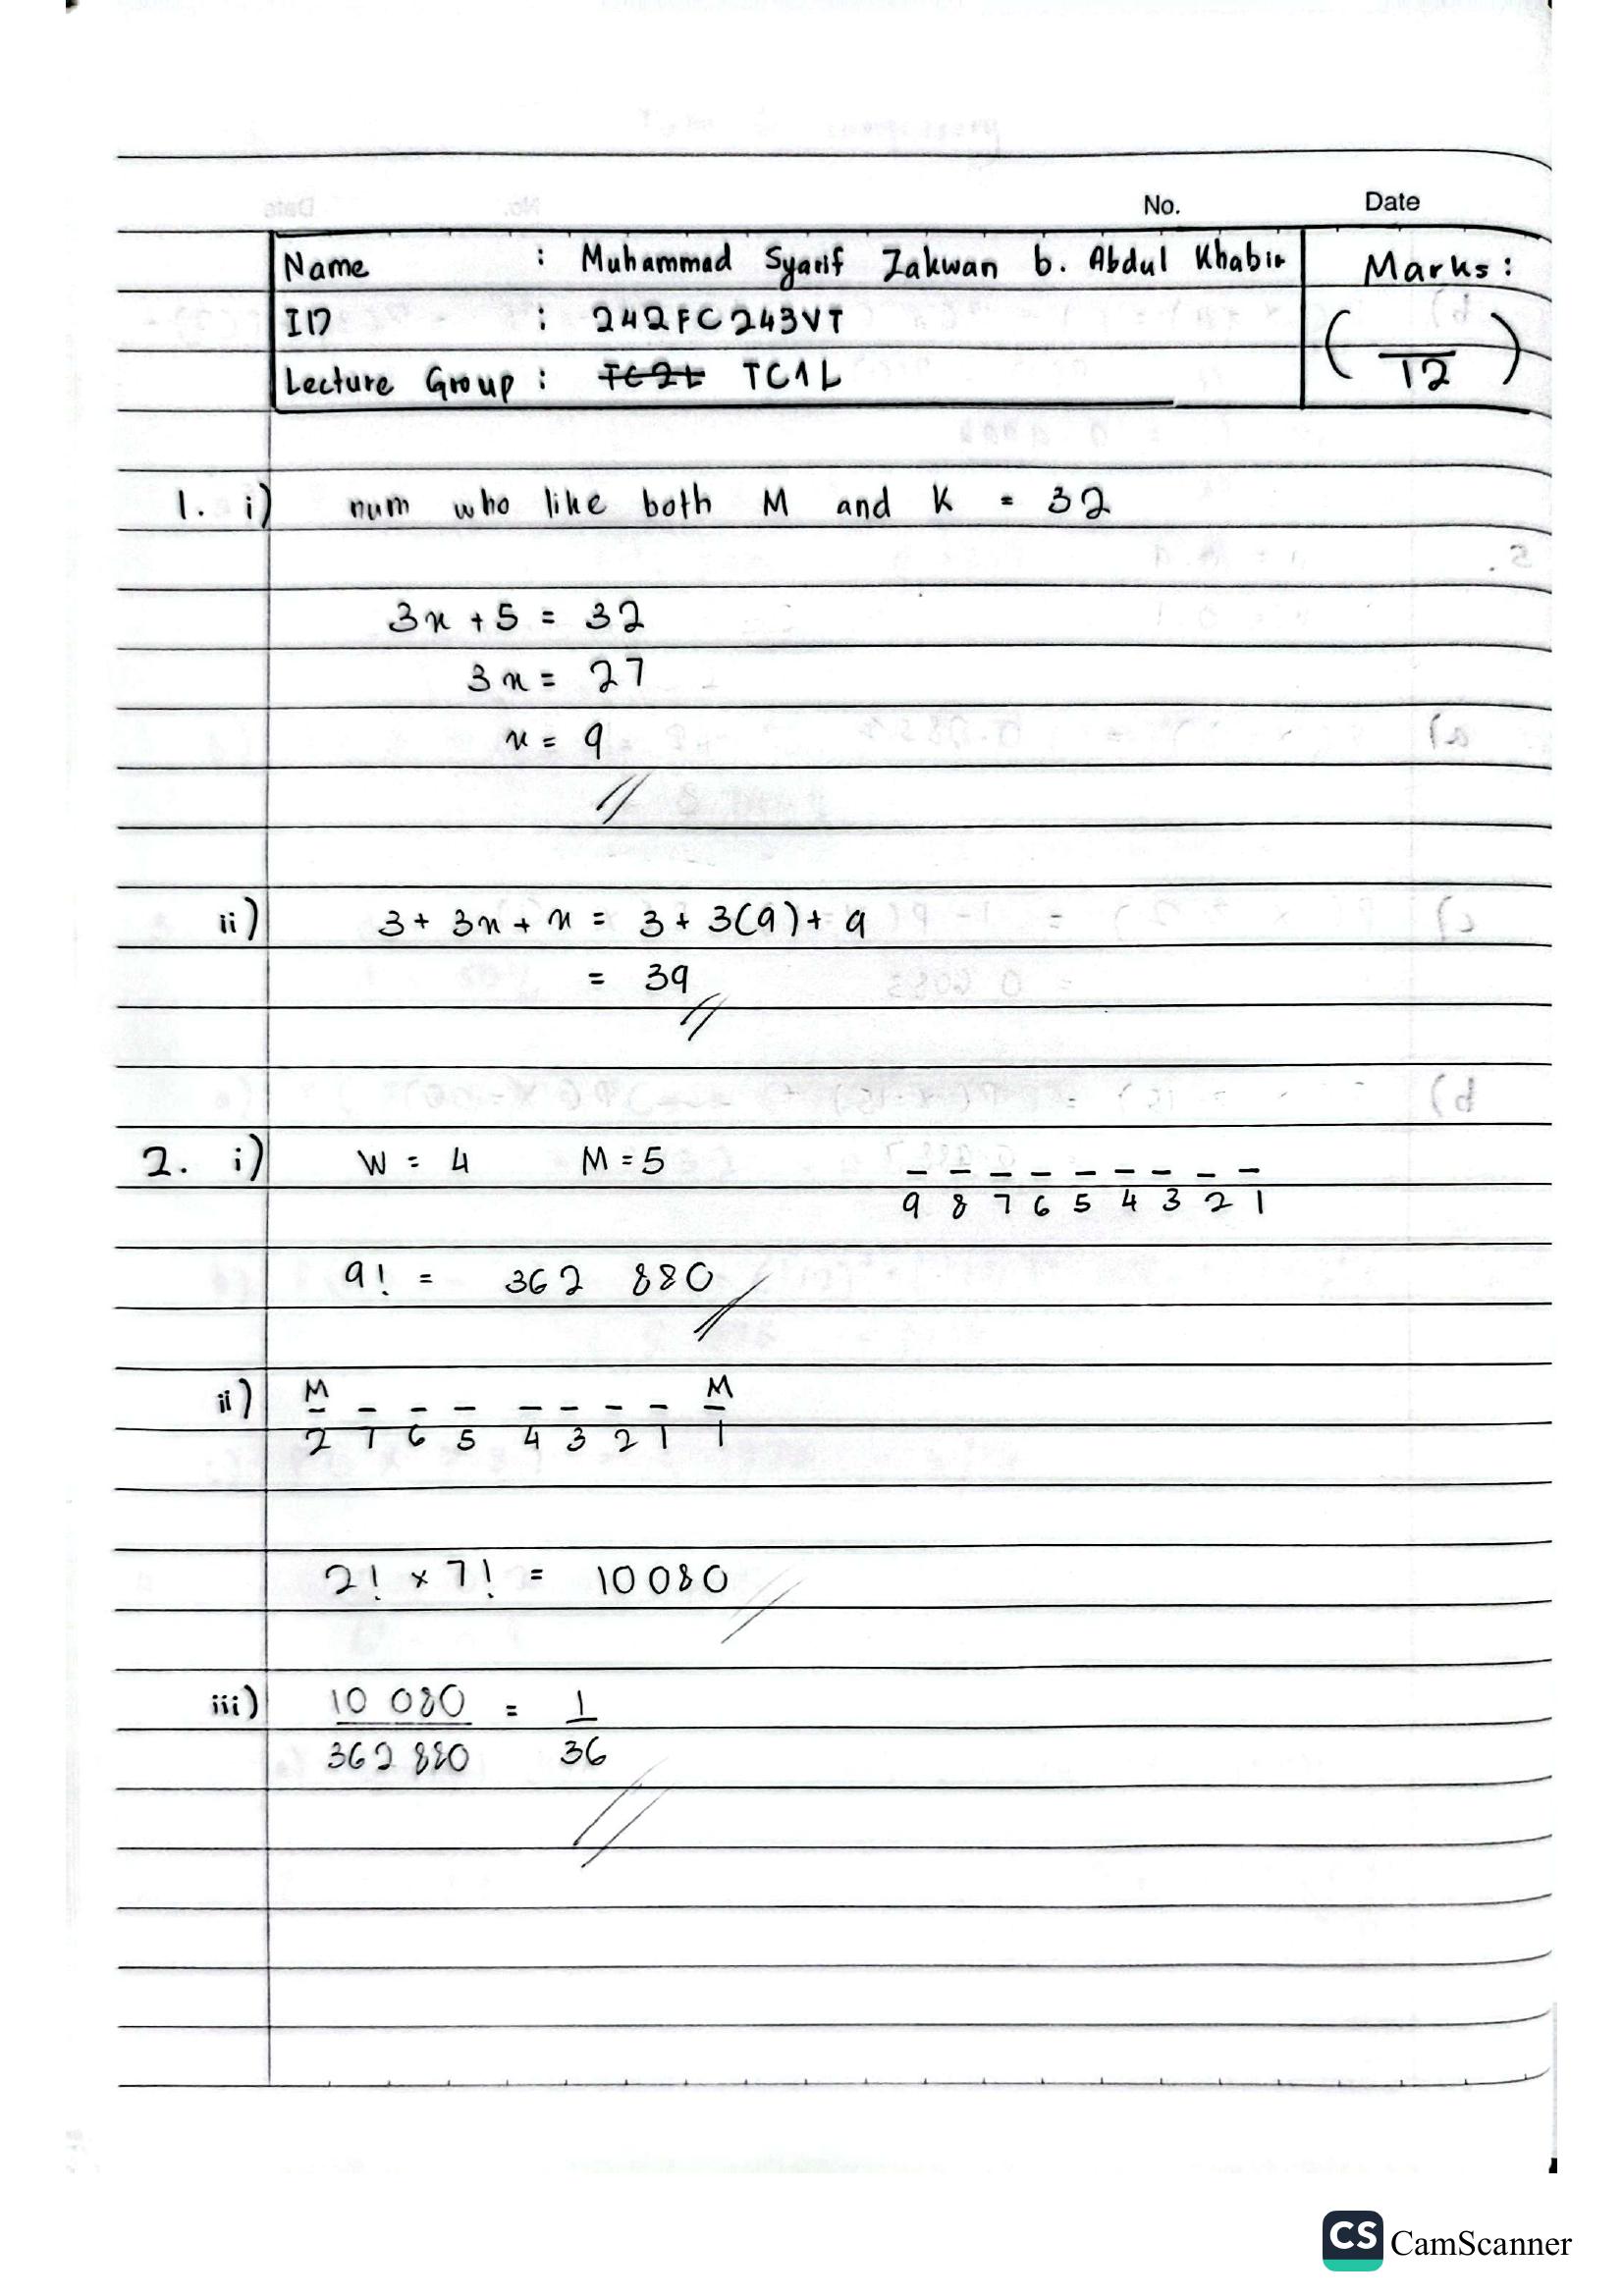 No. Date
Name : Muhammad Syarif Zakwan b. Abdul Khabir
Marks :
ID : 242FC243VT
( /12 )
Lecture Group : TC2L TC1L
1. i) num who like both M and K = 32
3x + 5 = 32
3x = 27
x = 9
ii) 3 + 3x + x = 3 + 3(9) + 9
= 39
2. i) W = 4 M = 5 _ _ _ _ _ _ _ _ _
9 8 7 6 5 4 3 2 1
9! = 362 880
ii) M _ _ _ _ _ _ _ M
2 7 6 5 4 3 2 1 1
2! × 7! = 10080
iii) 10 080 / 362 880 = 1 / 36
CS CamScanner